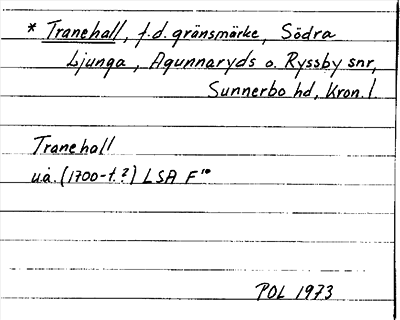 * Tranehall, f.d. gränsmärke, Södra
Ljunga, Agunnaryds o. Ryssby snr,
Sunnerbo hd, Kron. l.
Tranehall
u.å. (1700-t.?) LSA F 10
POL 1973